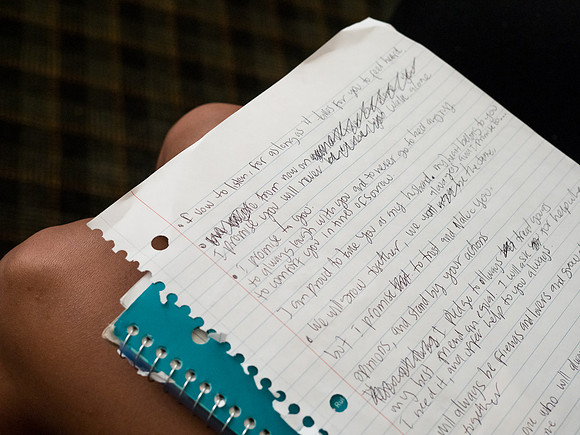 • I vow to listen. For as long as it takes for you to feel heard
• from now on
I promise you will never walk alone
• I promise to you:
to always laugh with you and to never go to bed angry,
to comfort you in times of sorrow.
I am proud to take you as my husband. My heart belongs to you
• We will grow together. We won't always be the same.
but I promise to trust and value your
opinions, and stand by your actions
I pledge to always treat you as
my best friend and equal. I will ask for help when
I need it, and offer help to you always
will always be friends and lovers and grow
together
one who will always